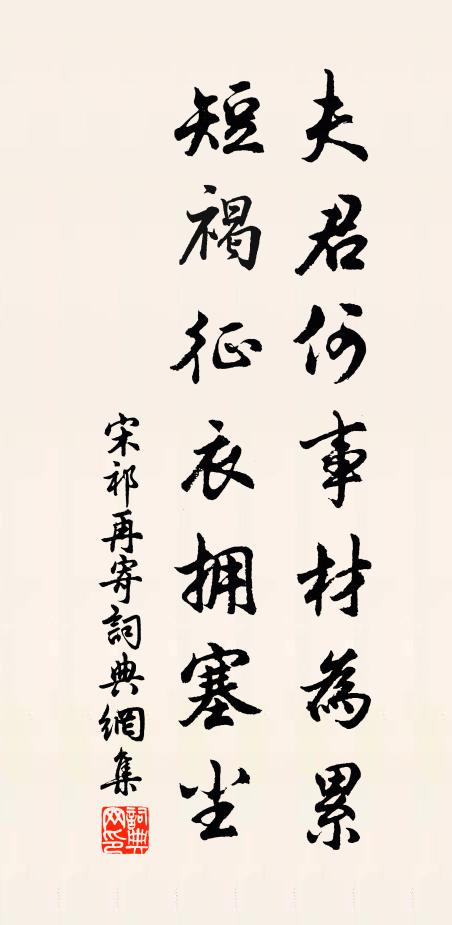 夫君何事材為累
短褐征衣拥塞尘
宋祁再寄詞典網集
詞典網印